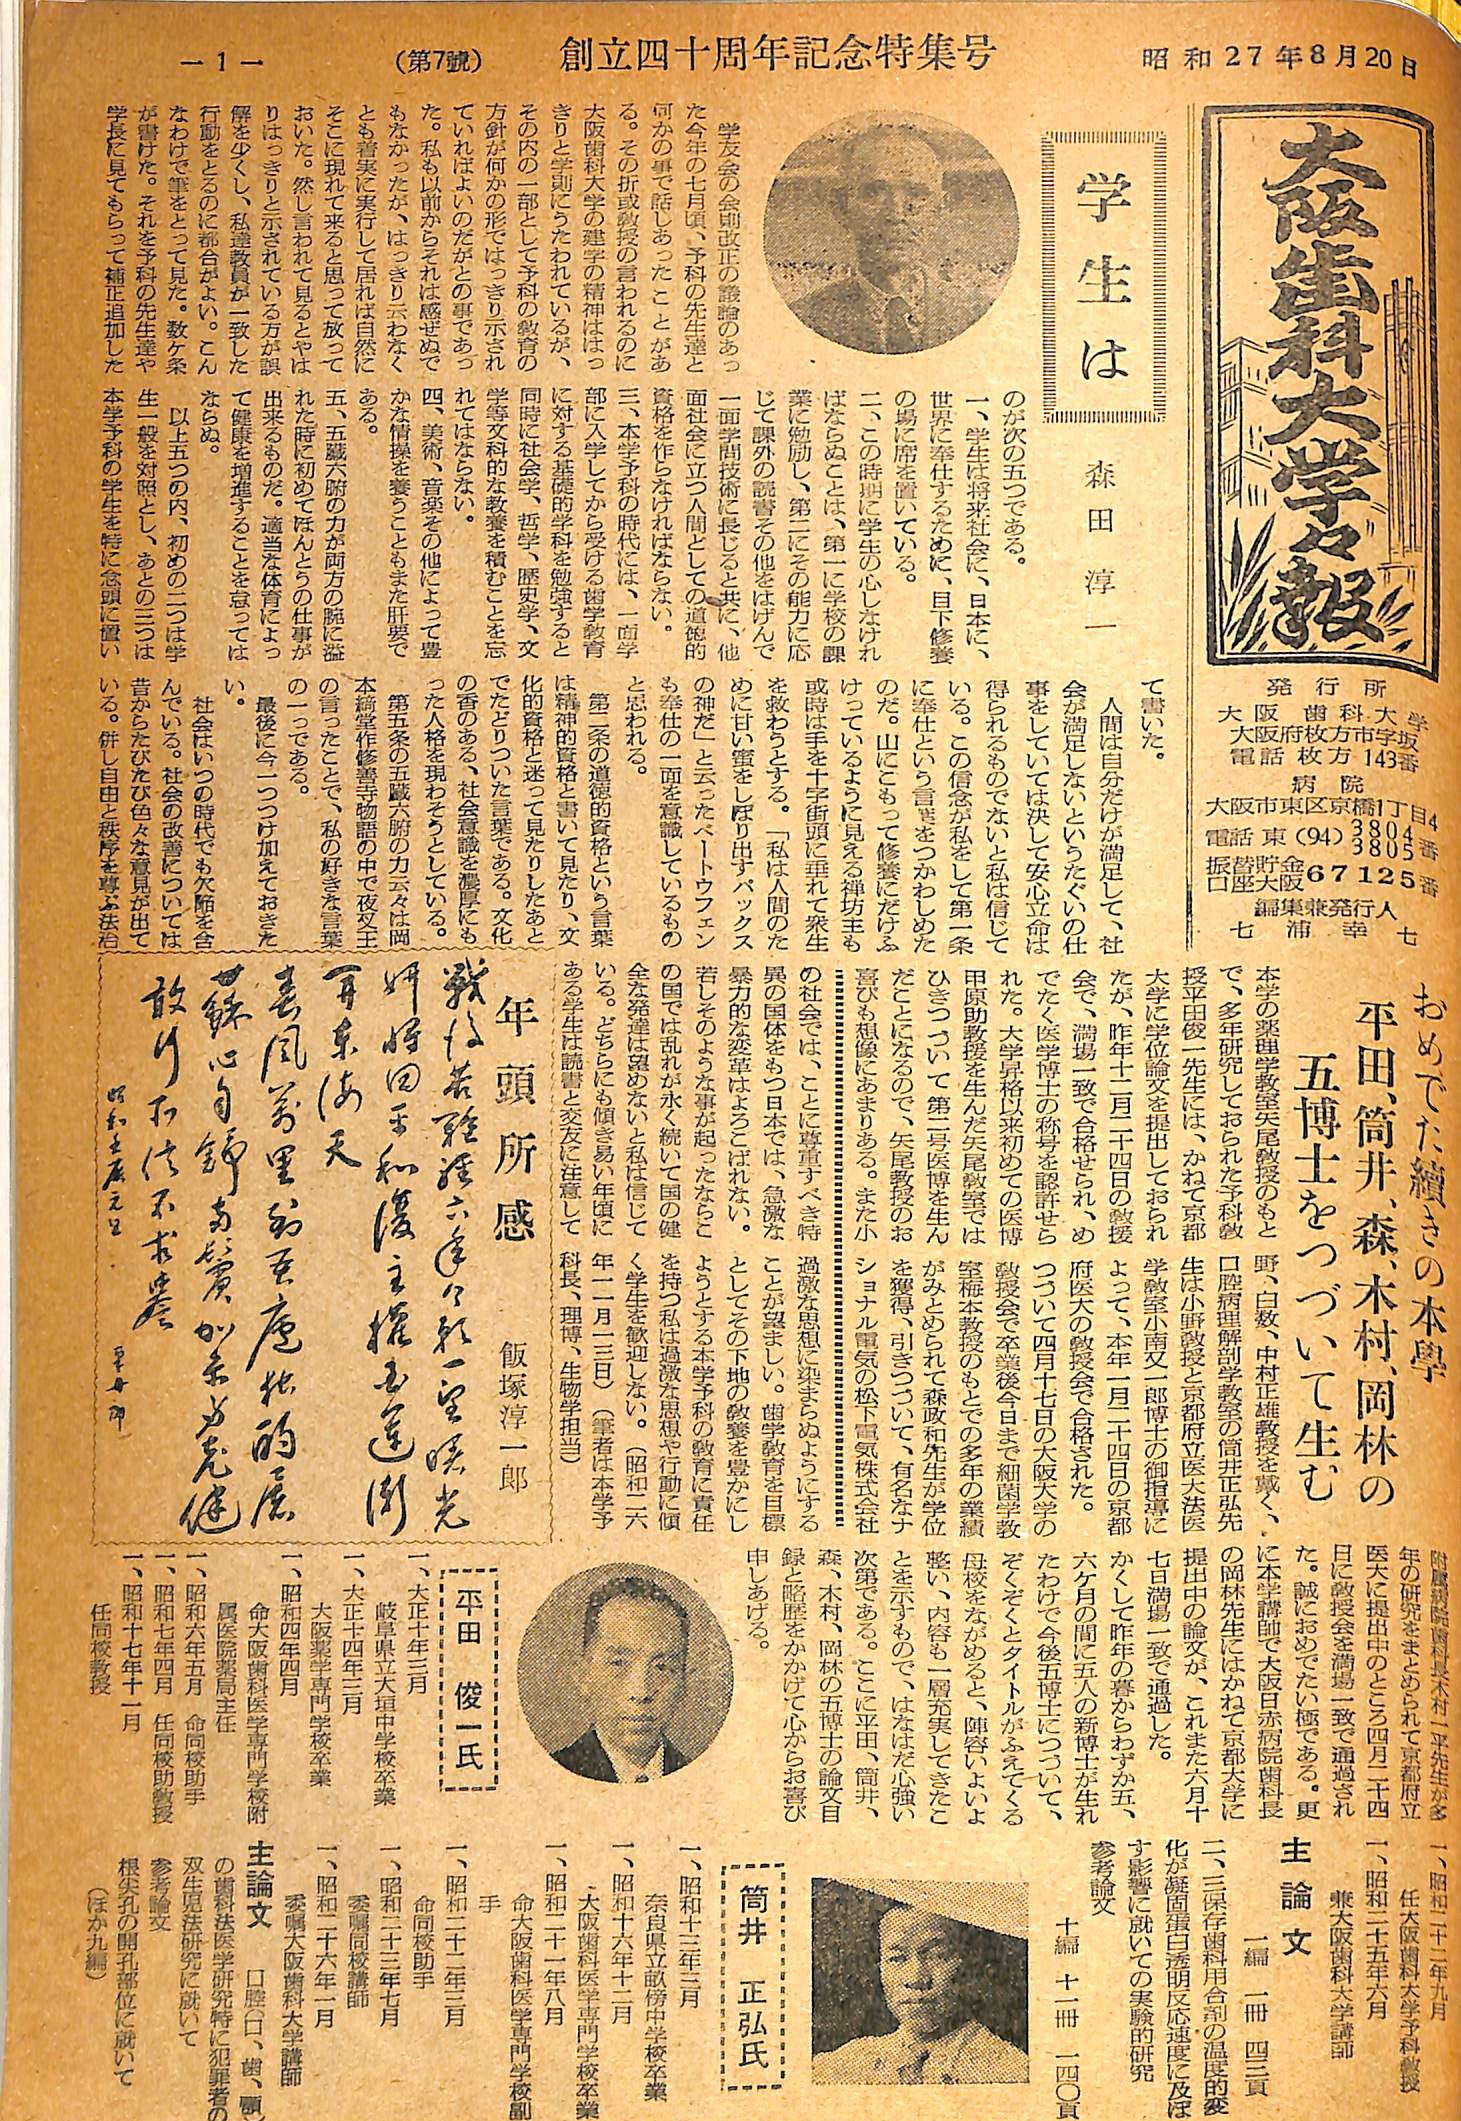 昭和27年8月20日
創立四十周年記念特集号
(第7號)
— 1 —
大阪歯科大学々報
発行所
大阪歯科大学
大阪府枚方市字坂
電話枚方143番
病院
大阪市東区京橋1丁目4
電話東(94)3804 3805番
振替貯金口座大阪67125番
編集兼発行人
七浦幸七
学生は
森田淳一
学友会の会則改正の議論のあっ
た今年の七月頃、予科の先生達と
何かの事で話しあったことがあ
る。その折或教授の言われるのに
大阪歯科大学の建学の精神ははっ
きりと学則にうたわれているが、
その内の一部として予科の教育の
方針が何かの形ではっきり示され
ていればよいのだがとの事であっ
た。私も以前からそれは感ぜぬで
もなかったが、はっきり云わなく
とも着実に実行して居れば自然に
そこに現れて来ると思って放って
おいた。然し言われて見るとやは
りはっきりと示されている方が誤
解を少くし、私達教員が一致した
行動をとるのに都合がよい。こん
なわけで筆をとって見た。数ケ条
が書けた。それを予科の先生達や
学長に見てもらって補正追加した
のが次の五つである。
一、学生は将来社会に、日本に、
世界に奉仕するために、目下修養
の場に席を置いている。
二、この時期に学生の心しなけれ
ばならぬことは、第一に学校の課
業に勉励し、第二にその能力に応
じて課外の読書その他をはげんで
一面学問技術に長じると共に、他
面社会に立つ人間としての道徳的
資格を作らなければならない。
三、本学予科の時代には、一面学
部に入学してから受ける歯学教育
に対する基礎的学科を勉強すると
同時に社会学、哲学、歴史学、文
学等文科的な教養を積むことを忘
れてはならない。
四、美術、音楽その他によって豊
かな情操を養うこともまた肝要で
ある。
五、五臓六腑の力が両方の腕に溢
れた時に初めてほんとうの仕事が
出来るものだ。適当な体育によっ
て健康を増進することを怠っては
ならぬ。
以上五つの内、初めの二つは学
生一般を対照とし、あとの三つは
本学予科の学生を特に念頭に置い
て書いた。
人間は自分だけが満足して、社
会が満足しないというたぐいの仕
事をしていては決して安心立命は
得られるものでないと私は信じて
いる。この信念が私をして第一条
に奉仕という言葉をつかわしめた
のだ。山にこもって修養にだけふ
けっているように見える禅坊主も
或時は手を十字街頭に垂れて衆生
を救わうとする。「私は人間のた
めに甘い蜜をしぼり出すバックス
の神だ」と云ったベートウフェン
も奉仕の一面を意識しているもの
と思われる。
第二条の道徳的資格という言葉
は精神的資格と書いて見たり、文
化的資格と迷って見たりしたあと
でたどりついた言葉である。文化
の香のある、社会意識を濃厚にも
った人格を現わそうとしている。
第五条の五臓六腑の力云々は岡
本綺堂作修善寺物語の中で夜叉王
の言ったことで、私の好きな言葉
の一っである。
最後に今一つつけ加えておきた
い。
社会はいつの時代でも欠陥を含
んでいる。社会の改善については
昔からたびたび色々な意見が出て
いる。併し自由と秩序を尊ぶ法治
の社会では、ことに尊重すべき特
異の国体をもつ日本では、急激な
暴力的な変革はよろこばれない。
若しそのような事が起ったならこ
の国では乱れが永く続いて国の健
全な発達は望めないと私は信じて
いる。どちらにも傾き易い年頃に
ある学生は読書と交友に注意して
過激な思想に染まらぬようにする
ことが望ましい。歯学教育を目標
としてその下地の教養を豊かにし
ようとする本学予科の教育に責任
を持つ私は過激な思想や行動に傾
く学生を歓迎しない。(昭和二六
年一一月一三日)(筆者は本学予
科長、理博、生物学担当)
年頭所感
飯塚淳一郎
おめでた續きの本學
平田、筒井、森、木村、岡林の
五博士をつづいて生む
本学の薬理学教室矢尾教授のもと
で、多年研究しておられた予科教
授平田俊一先生には、かねて京都
大学に学位論文を提出しておられ
たが、昨年十二月二十四日の教授
会で、満場一致で合格せられ、め
でたく医学博士の称号を認許せら
れた。大学昇格以来初めての医博
甲原助教授を生んだ矢尾教室では
ひきつづいて第二号医博を生ん
だことになるので、矢尾教授のお
喜びも想像にあまりある。また小
野、白数、中村正雄教授を戴く、
口腔病理解剖学教室の筒井正弘先
生は小野教授と京都府立医大法医
学教室小南又一郎博士の御指導に
よって、本年一月二十四日の京都
府医大の教授会で合格された。
つづいて四月十七日の大阪大学の
教授会で卒業後今日まで細菌学教
室梅本教授のもとでの多年の業績
がみとめられて森政和先生が学位
を獲得、引きつづいて、有名なナ
ショナル電気の松下電気株式会社
附属病院歯科長木村一平先生が多
年の研究をまとめられて京都府立
医大に提出中のところ四月二十四
日に教授会を満場一致で通過され
た。誠におめでたい極である。更
に本学講師で大阪日赤病院歯科長
の岡林先生にはかねて京都大学に
提出中の論文が、これまた六月十
七日満場一致で通過した。
かくして昨年の暮からわずか五、
六ケ月の間に五人の新博士が生れ
たわけで今後五博士につづいて、
ぞくぞくとタイトルがふえてくる
母校をながめると、陣容いよいよ
整い、内容も一層充実してきたこ
とを示すもので、はなはだ心強い
次第である。ここに平田、筒井、
森、木村、岡林の五博士の論文目
録と略歴をかかげて心からお喜び
申しあげる。
平田俊一氏
一、大正十年三月
岐阜県立大垣中学校卒業
一、大正十四年三月
大阪薬学専門学校卒業
一、昭和四年四月
命大阪歯科医学専門学校附
属医院薬局主任
一、昭和六年五月 命同校助手
一、昭和七年四月 任同校助教授
一、昭和十七年十一月
任同校教授
一、昭和二十二年九月
任大阪歯科大学予科教授
一、昭和二十五年六月
兼大阪歯科大学講師
主論文
一編 一冊 四三頁
二、三保存歯科用合剤の温度的変
化が凝固蛋白透明反応速度に及ぼ
す影響に就いての実験的研究
参考論文
十編 十一冊 一四〇頁
筒井正弘氏
一、昭和十三年三月
奈良県立畝傍中学校卒業
一、昭和十六年十二月
大阪歯科医学専門学校卒業
一、昭和二十一年八月
命大阪歯科医学専門学校副
手
一、昭和二十二年三月
命同校助手
一、昭和二十三年七月
委嘱同校講師
一、昭和二十六年一月
委嘱大阪歯科大学講師
主論文 口腔(口、歯、顎)
の歯科法医学研究特に犯罪者の
双生児法研究に就いて
参考論文
根尖孔の開孔部位に就いて
(ほか九編)